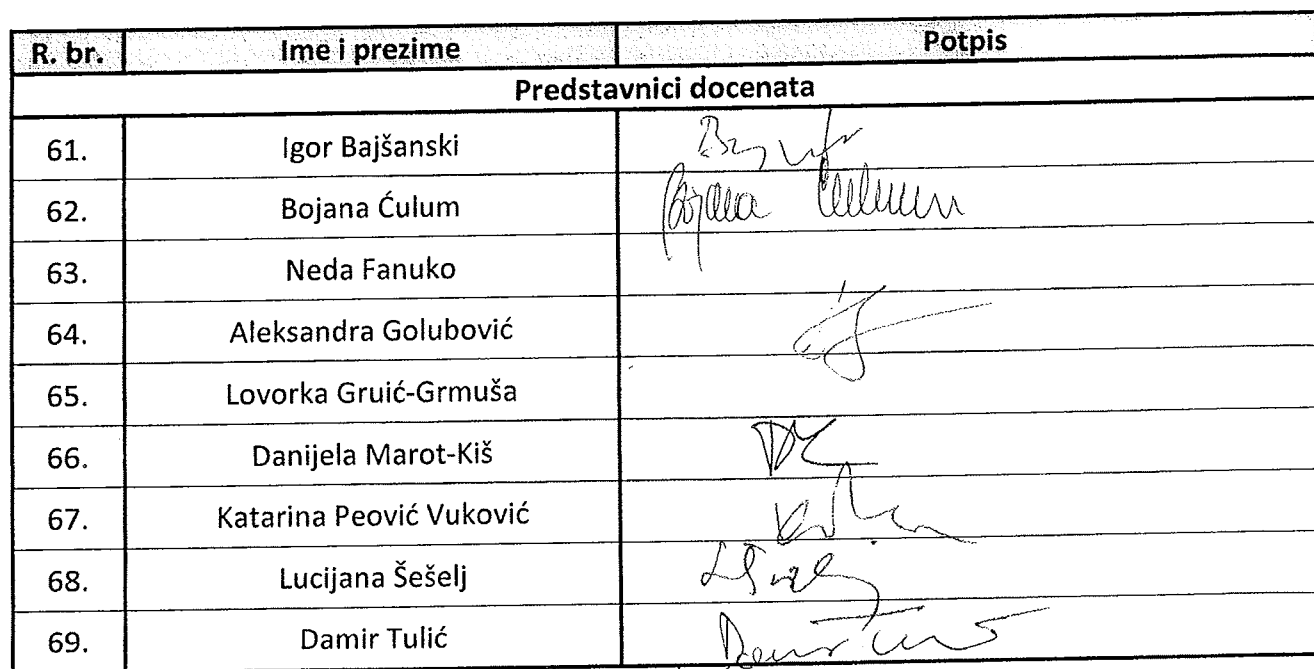 R. br. Ime i prezime Potpis
Predstavnici docenata
61. Igor Bajšanski
62. Bojana Ćulum Bojana Ćulum
63. Neda Fanuko
64. Aleksandra Golubović
65. Lovorka Gruić-Grmuša
66. Danijela Marot-Kiš
67. Katarina Peović Vuković
68. Lucijana Šešelj
69. Damir Tulić